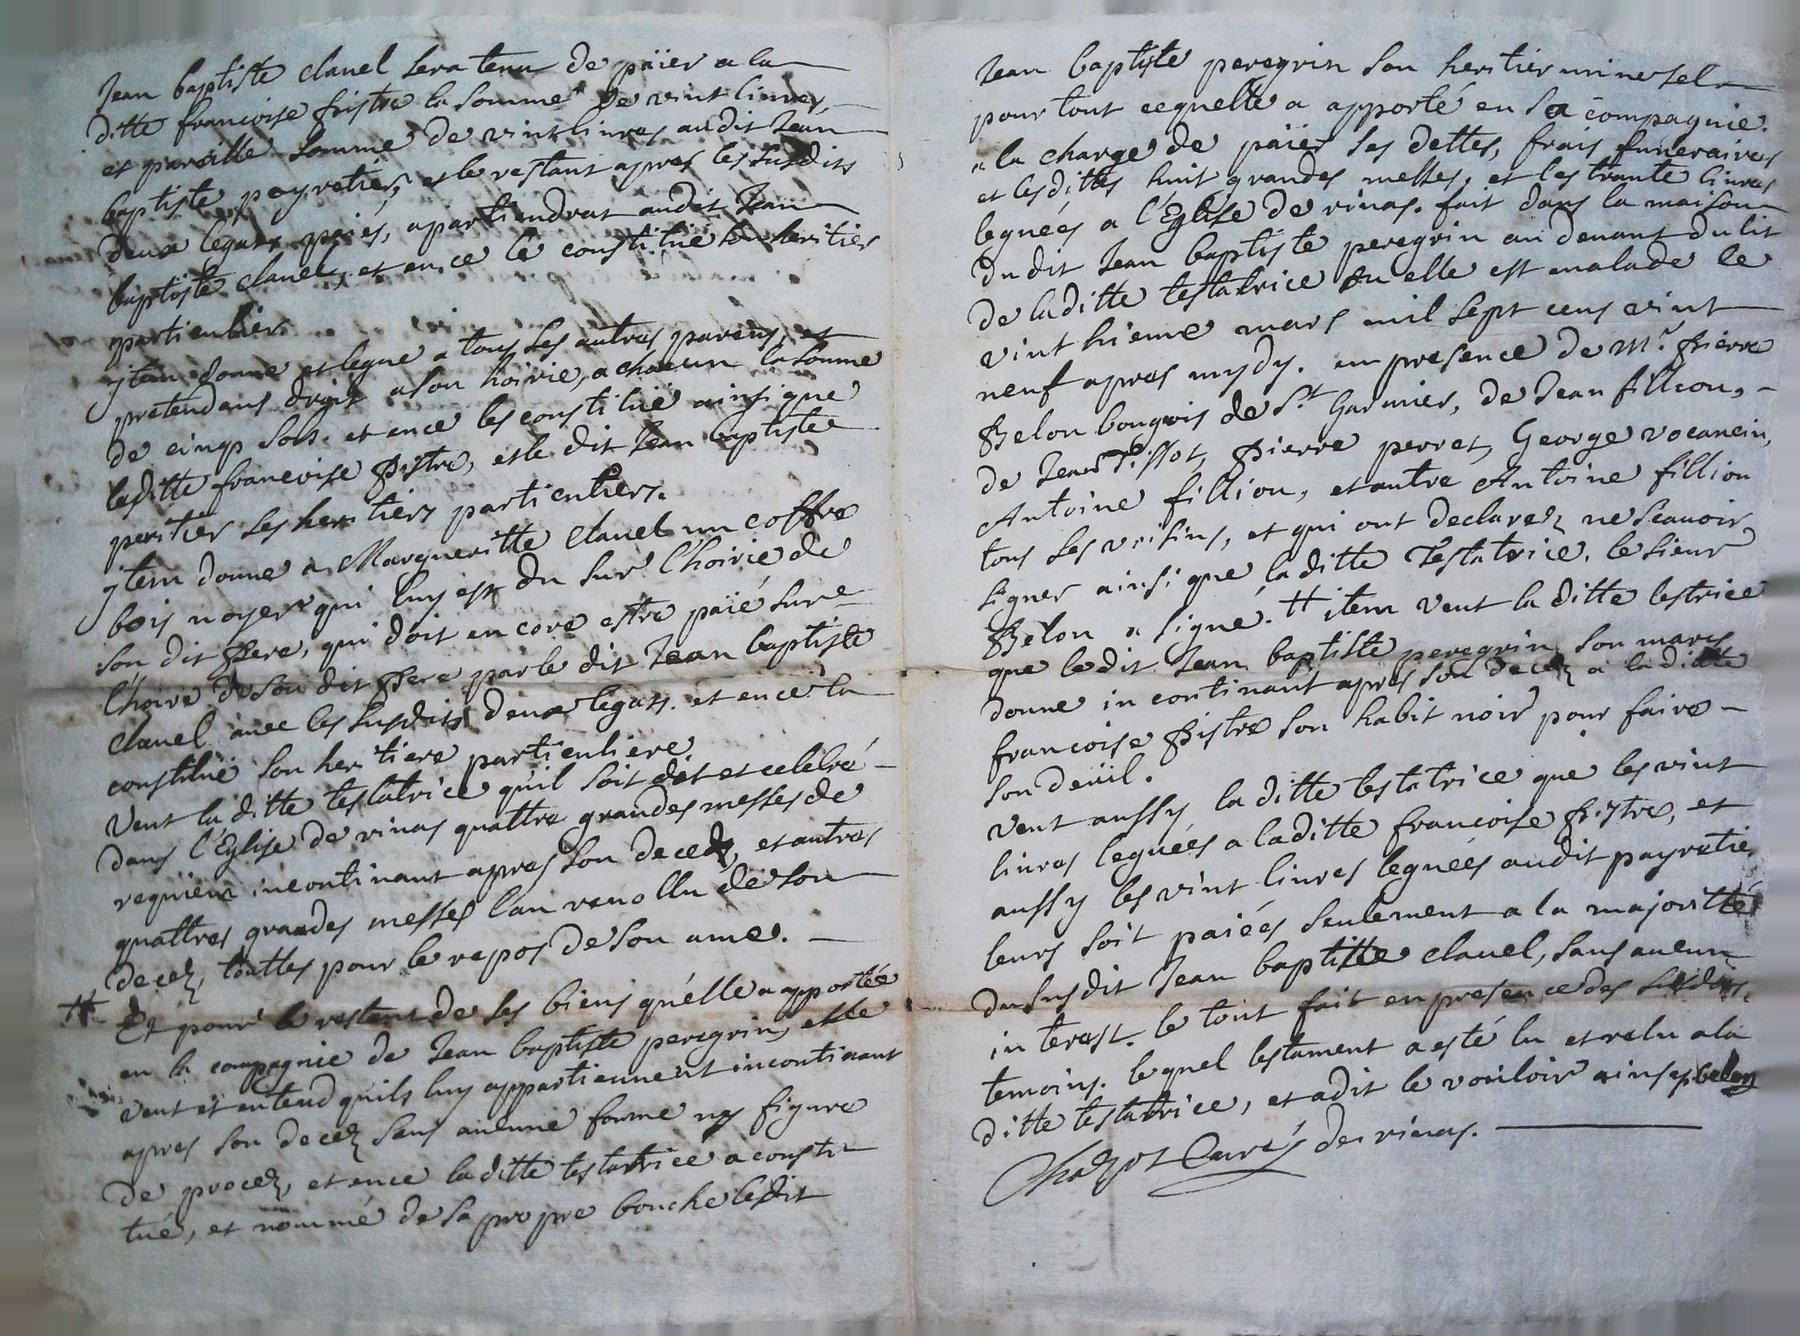 Jean baptiste clauel sera tenu de païer a la
ditte francoise pistre la somme de vint liures,
et pareille somme de vint liures audit Jean
baptiste peyretier, et le restant apres les susdits
deux legats païés, apartiendrat audit Jean
baptiste clauel, et en ce le constitüe son heritier
particulier.
jtem donne et legue a tous ses autres parens, et
pretendans droit a son hoirie, a chacun la somme
de cinq sols. et en ce les constitüe ainsi que
laditte francoise pistre, et le dit Jean baptiste
peritier ses heritiers particuliers.
jtem donne a Margueritte clauel un coffre
bois noyer qui luy est du sur l'hoirie de
son dit pere, qui doit encore estre païé sur
l'hoire de son dit pere par le dit Jean baptiste
clauel auec les susdits deux legats. et en ce la
constitüe son heritiere particuliere.
Veut la ditte testatrice qu'il soit dit et celebré
dans l'Eglise de vinas quattre grandes messes de
requiem incontinant apres son decez, et autres
quattres grandes messes l'an reuollu de son
decez, touttes pour le repos de son ame.
Et pour le restant de ses biens qu'elle a apportée
en la compagnie de Jean baptiste peregrin, elle
veut et entend qu'ils luy appartiennent incontinant
apres son decez sans aucune forme ny figure
de procez, et en ce laditte testatrice a consti
tué, et nommé de sa propre bouche ledit
Jean baptiste peregrin son heritier uniuersel
pour tout ce quelle a apporté en sa compagnie.
a la charge de païer ses dettes, frais funeraires
et lesdittes huit grandes messes, et les trante liures
leguées a l'Eglise de vinas. fait dans la maison
du dit Jean baptiste peregrin au deuant du lit
de laditte testatrice ou elle est malade le
vint hieme mars mil sept cens vint
neuf apres mydy. en presence de Mr. Pierre
Belon bougois de St Garmier, de Jean fillion,
de Jean Tissot, Pierre perret, George vocancin,
Antoine fillion, et autre Antoine fillion
tous ses voisins, et qui ont declarez ne scauoir
signer ainsi que laditte Testatrice. le sieur
Belon a signé. # item veut la ditte testrice
que ledit Jean baptiste peregrin son marys
donne incontinant apres son decez a laditte
francoise pistre son habit noir pour faire
son deüil.
veut aussy la ditte testatrice que les vint
liures leguées a laditte francoise pistre, et
aussy les vint liures leguées audit payretie
leurs soit païées seulement a la majoritté
du susdit Jean baptiste clauel, sans aucun
interest. le tout fait en presence des susdits
temoins. lequel testament a esté lu et relu a la
ditte testatrice, et a dit le voüloir ainsy. belon
Curé de vinas.